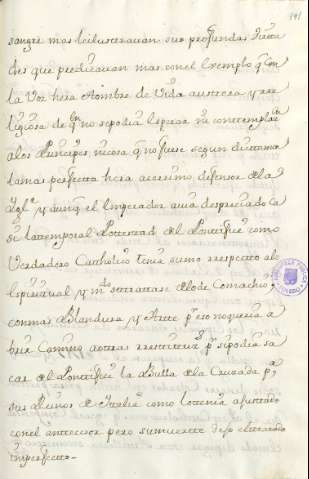 191
sangre mas le ilustrauan sus profundas Ziren
cias que predicauan mas con el Exemplo q con
la Voz hera Hombre de Vida austera y rre
ligiosa de qn no se podia esperar ni contemplar
a los Principes, ni cosa q no fuese segun dictamen
la mas perfecta hera acerrimo defensor de la
Yglª y aunq el Emperador auia despreciado la
temporal Potestad del Pontifice como
Verdadero Catholico tenia sumo respecto a lo
espiritual y se tratase de lo de Comachio,
con mas Blandura y Arte pero no queria a
brir Camino a otras rrestituciones pr se podia sa
car del Pontifice la Bulla de la Cruzada pª
sus Reinos de Italia como lo tenia ajustado
con el antecesor pero su muerte dejo el tratado
imperfecto-